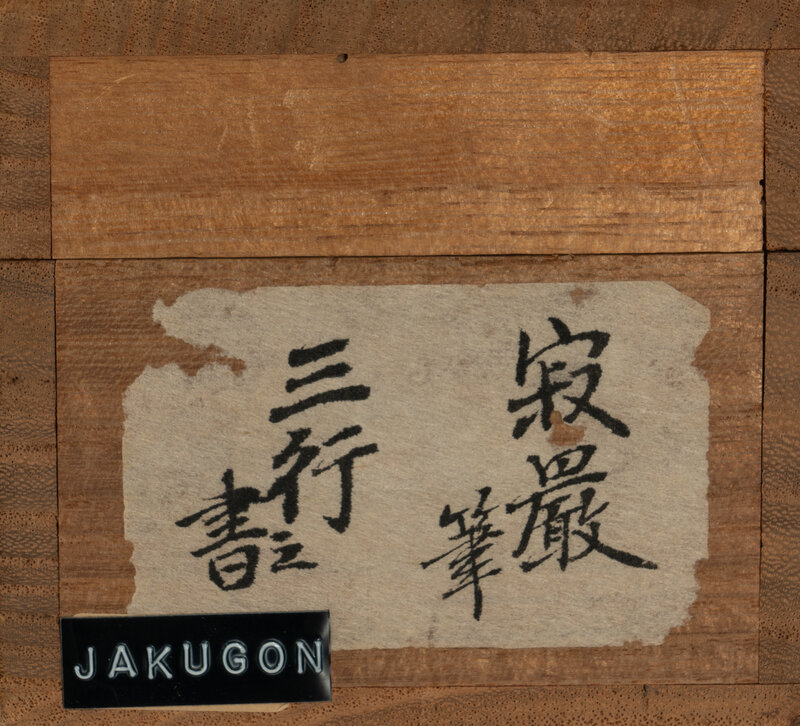 寂嚴筆
三行之書
JAKUGON